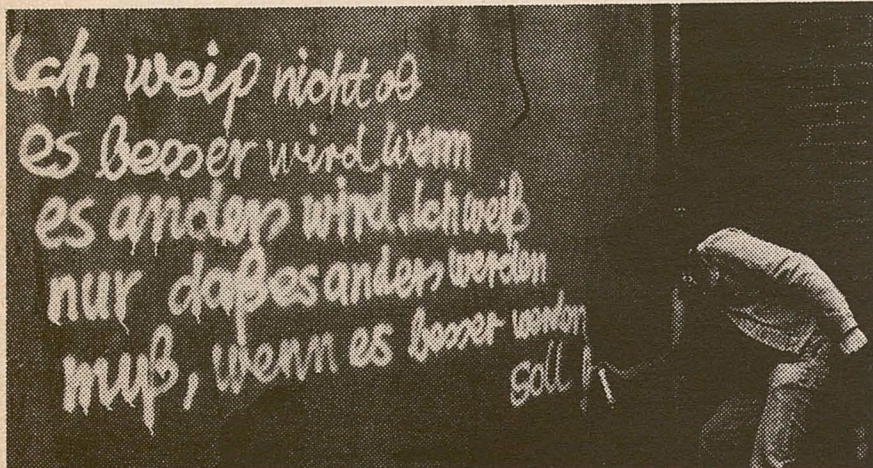 Ich weiß nicht ob
es besser wird wenn
es anders wird. Ich weiß
nur daß es anders werden
muß, wenn es besser werden
soll